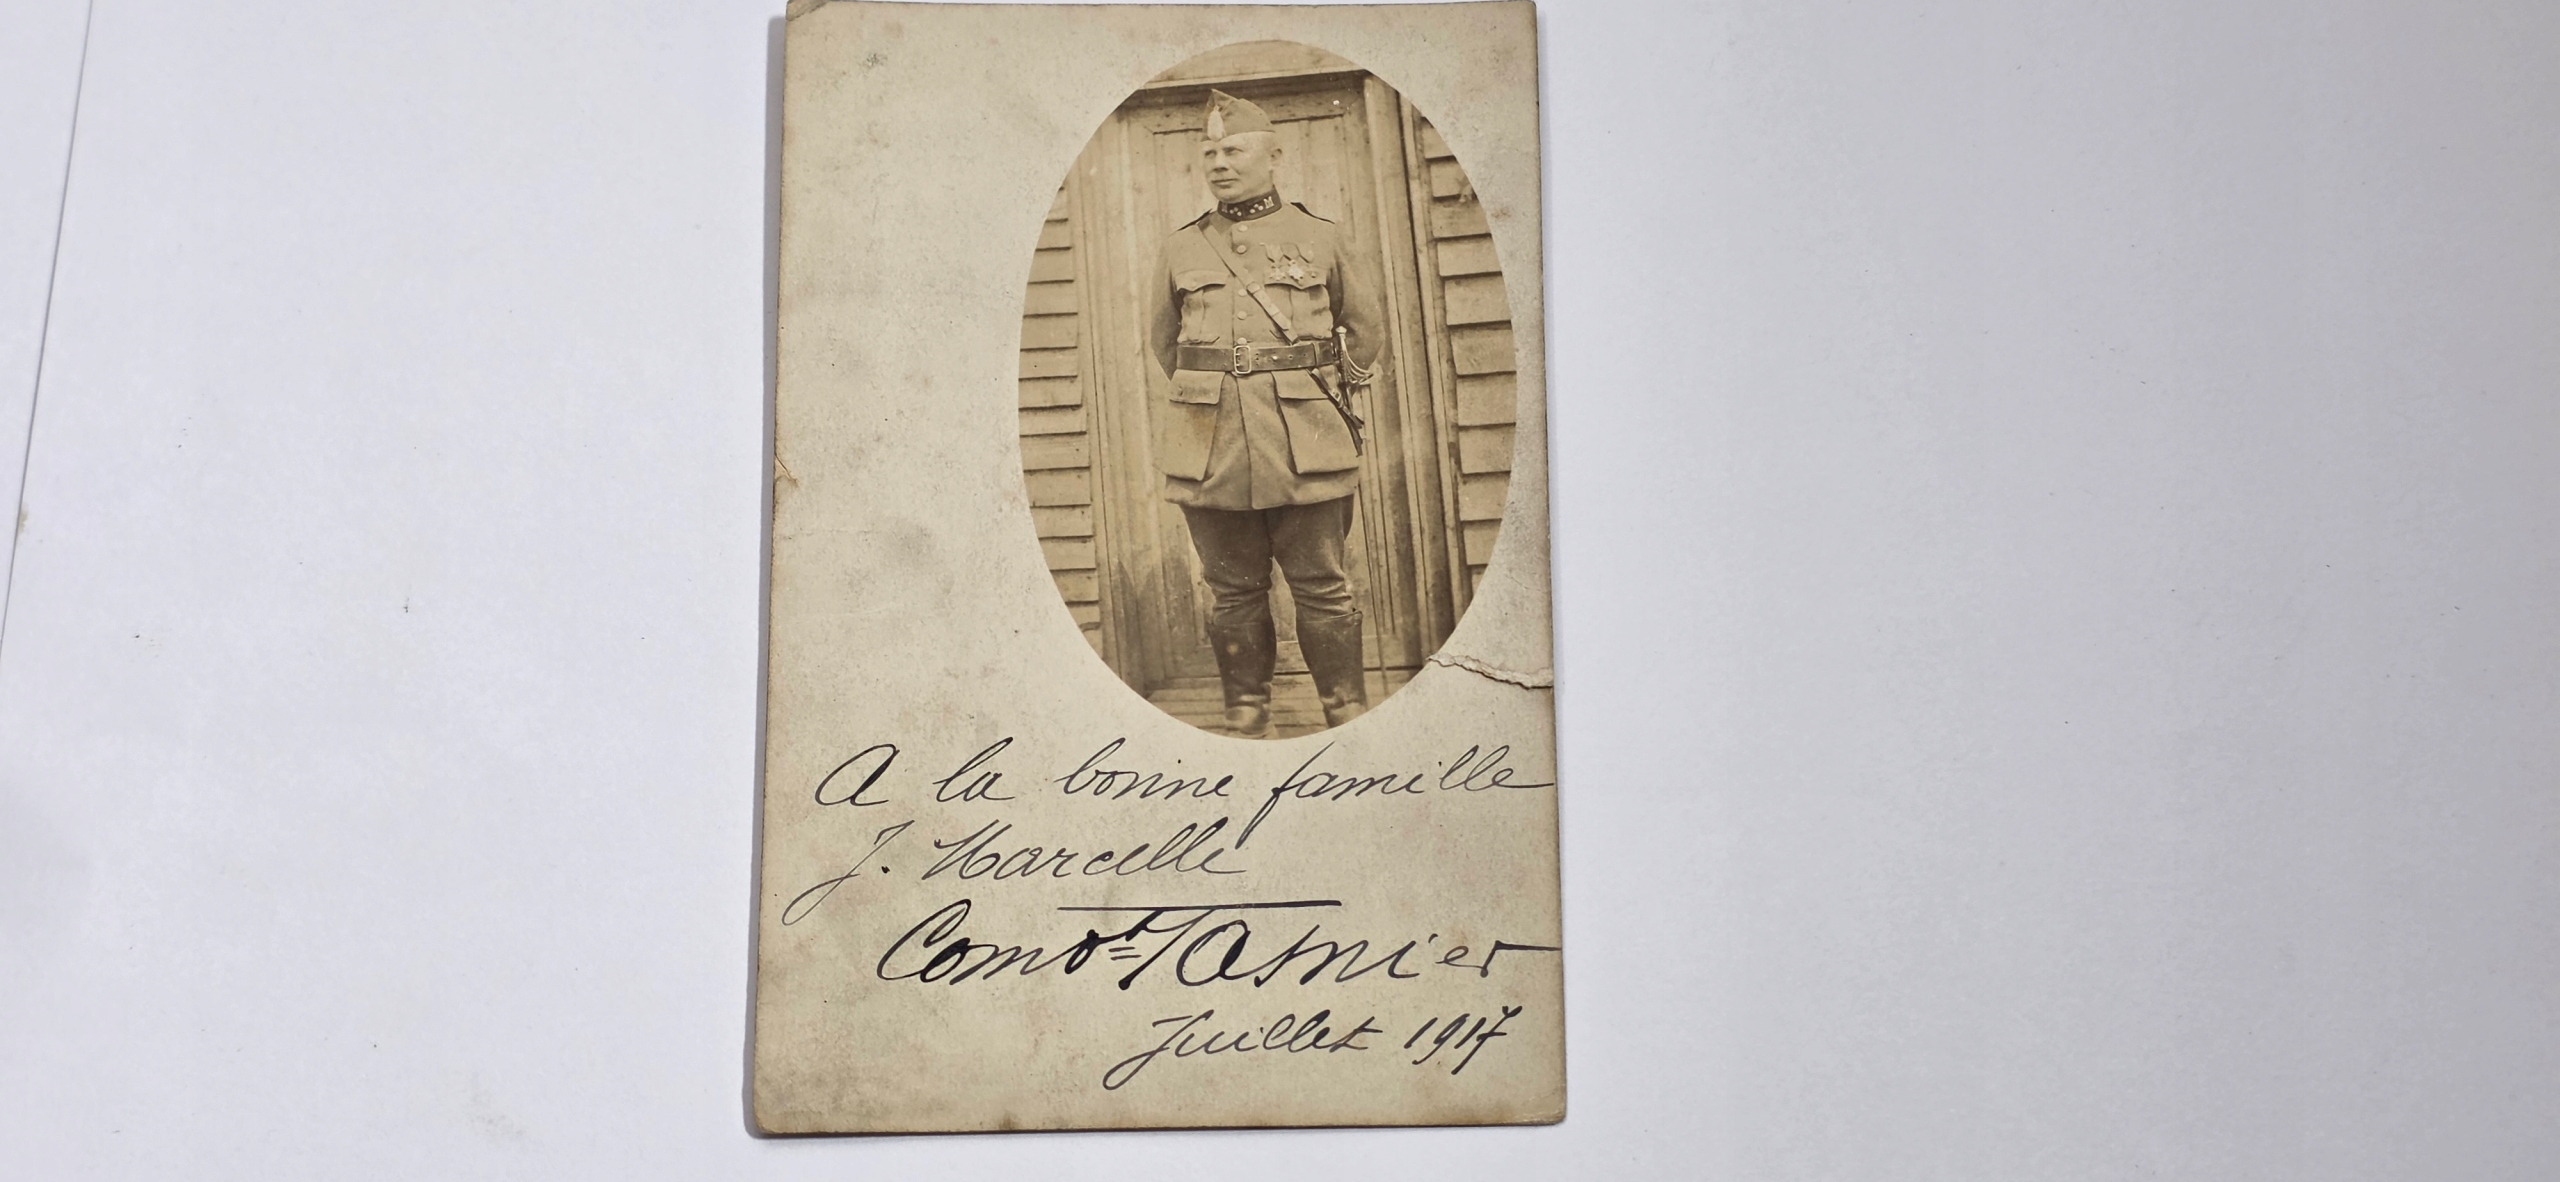 A la bonne famille
J. Marcelle
Comdt Tasnier
Juillet 1917